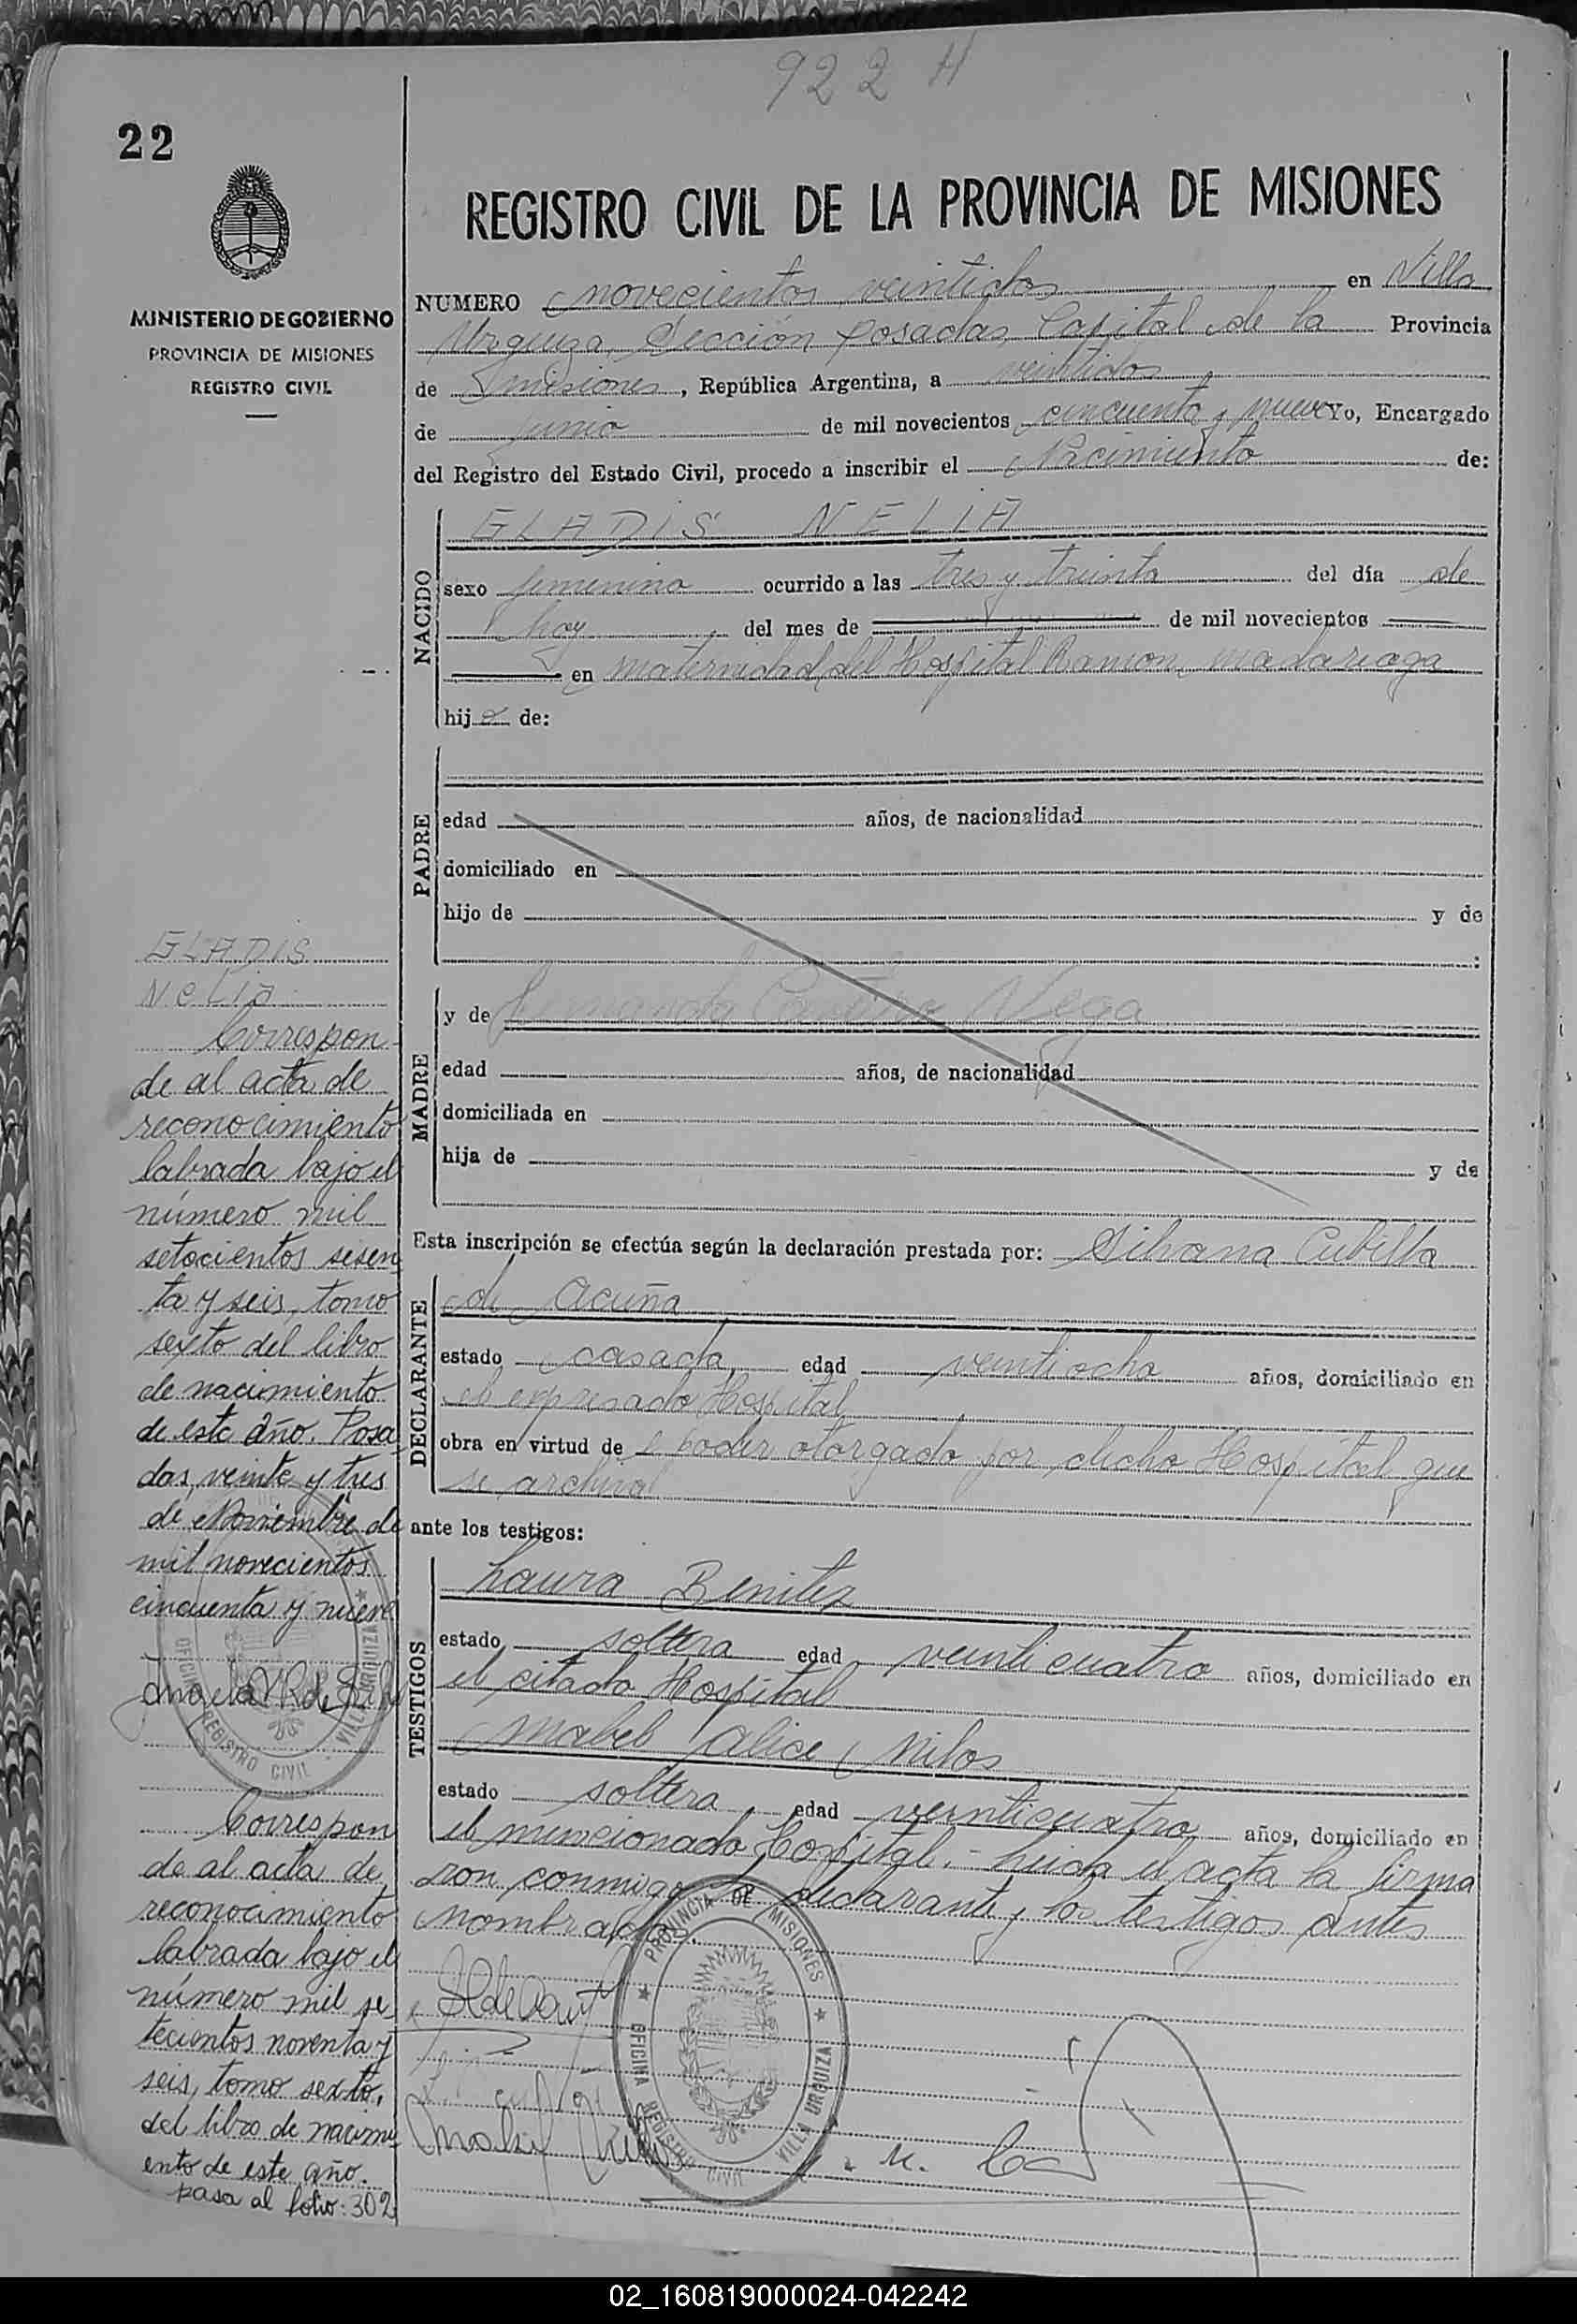 922 H
22
MINISTERIO DE GOBIERNO
PROVINCIA DE MISIONES
REGISTRO CIVIL
REGISTRO CIVIL DE LA PROVINCIA DE MISIONES
NUMERO novecientos veintidos en Villa
Urquiza, Sección Posadas, Capital de la Provincia
de Misiones, República Argentina, a veintidos
de junio de mil novecientos cincuenta y nueve Yo, Encargado
del Registro del Estado Civil, procedo a inscribir el Nacimiento de:
NACIDO
GLADIS NELIA
sexo femenino ocurrido a las tres y treinta del día de
hoy del mes de de mil novecientos
en maternidad del Hospital Ramon madariaga
hija de:
PADRE
edad años, de nacionalidad
domiciliado en
hijo de y de
MADRE
y de Vega
edad años, de nacionalidad
domiciliada en
hija de y de
Esta inscripción se efectúa según la declaración prestada por: Silvana Cubilla
DECLARANTE
de Acuña
estado casada, edad veintiocho años, domiciliado en
el expresado Hospital
obra en virtud de poder otorgado por dicho Hospital que
se archiva
ante los testigos:
TESTIGOS
Laura Benitez
estado soltera edad veinticuatro años, domiciliado en
el citado Hospital
Mabel Alice Milos
estado soltera edad veinticuatro años, domiciliado en
el mencionado Hospital.- Leida el acta la firma
ron conmigo la declarante y los testigos antes
nombrados.
PROVINCIA DE MISIONES
OFICINA REGISTRO CIVIL VILLA URQUIZA
GLADIS
NELIA
Correspon
de al acta de
reconocimiento
labrada bajo el
número mil
setecientos sesen
ta y seis, tomo
sexto del libro
de nacimiento
de este año. Posa
das, veinte y tres
de Noviembre de
mil novecientos
cincuenta y nueve
OFICINA REGISTRO CIVIL VILLA URQUIZA
Correspon
de al acta de
reconocimiento
labrada bajo el
número mil se
tecientos noventa y
seis, tomo sexto,
del libro de nacimi
ento de este año.
pasa al folio: 302
02_160819000024-042242